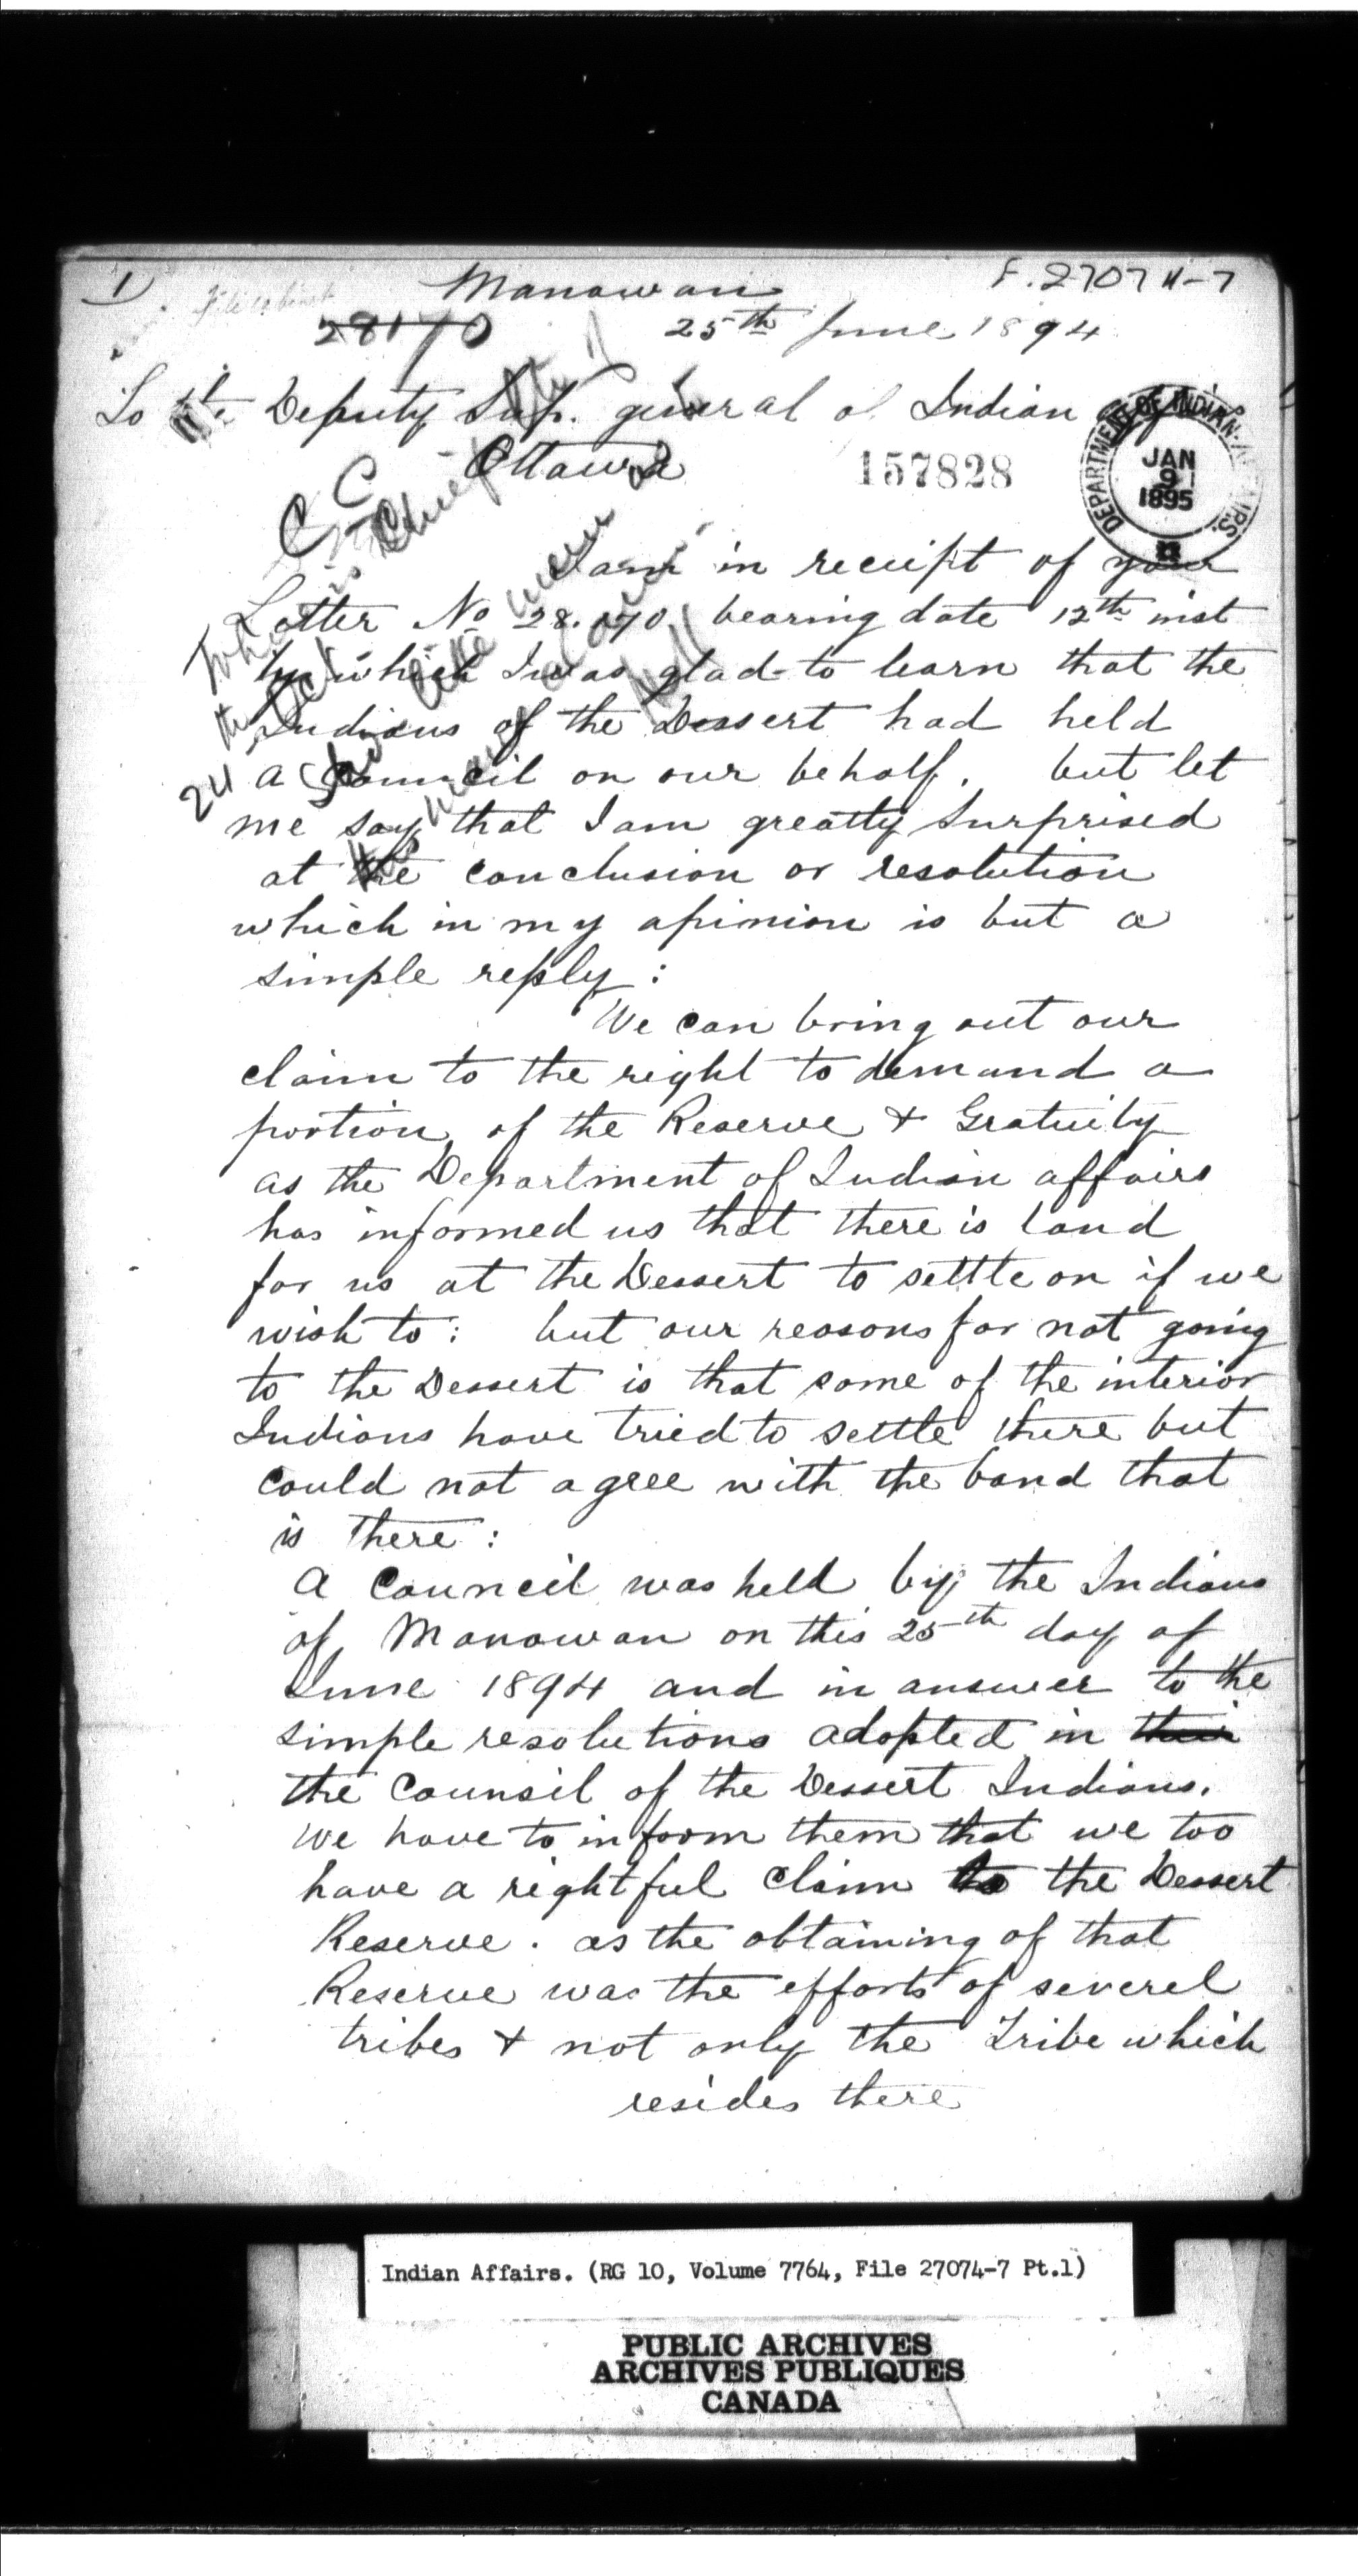 1
F. 27074-7
Manawan
28170
25th June 1894
To the Deputy Sup. general of Indian
Ottawa
157828
DEPARTMENT OF INDIAN AFFAIRS.
JAN
9
1895
C C
Chief
I am in receipt of your
Letter No 28.170 bearing date 12th inst
by which I was glad to learn that the
Indians of the Dessert had held
a Council on our behalf. but let
me say that I am greatty Surprised
at the conclusion or resolution
which in my apinion is but a
simple reply :
We can bring out our
claim to the right to demand a
portion of the Reserve & Gratuity
as the Department of Indian affairs
has informed us that there is land
for us at the Dessert to settle on if we
wish to : but our reasons for not going
to the Dessert is that some of the interior
Indians have tried to settle there but
could not agree with the band that
is there :
A Council was held by the Indians
of Manowan on this 25th day of
June 1894 and in answer to the
simple resolutions adopted in their
the Counsil of the Dessert Indians.
We have to inform them that we too
have a rightful claim to the Dessert
Reserve. as the obtaining of that
Reserve was the efforts of severel
tribes & not only the Tribe which
resides there
Indian Affairs. (RG 10, Volume 7764, File 27074-7 Pt.1)
PUBLIC ARCHIVES
ARCHIVES PUBLIQUES
CANADA